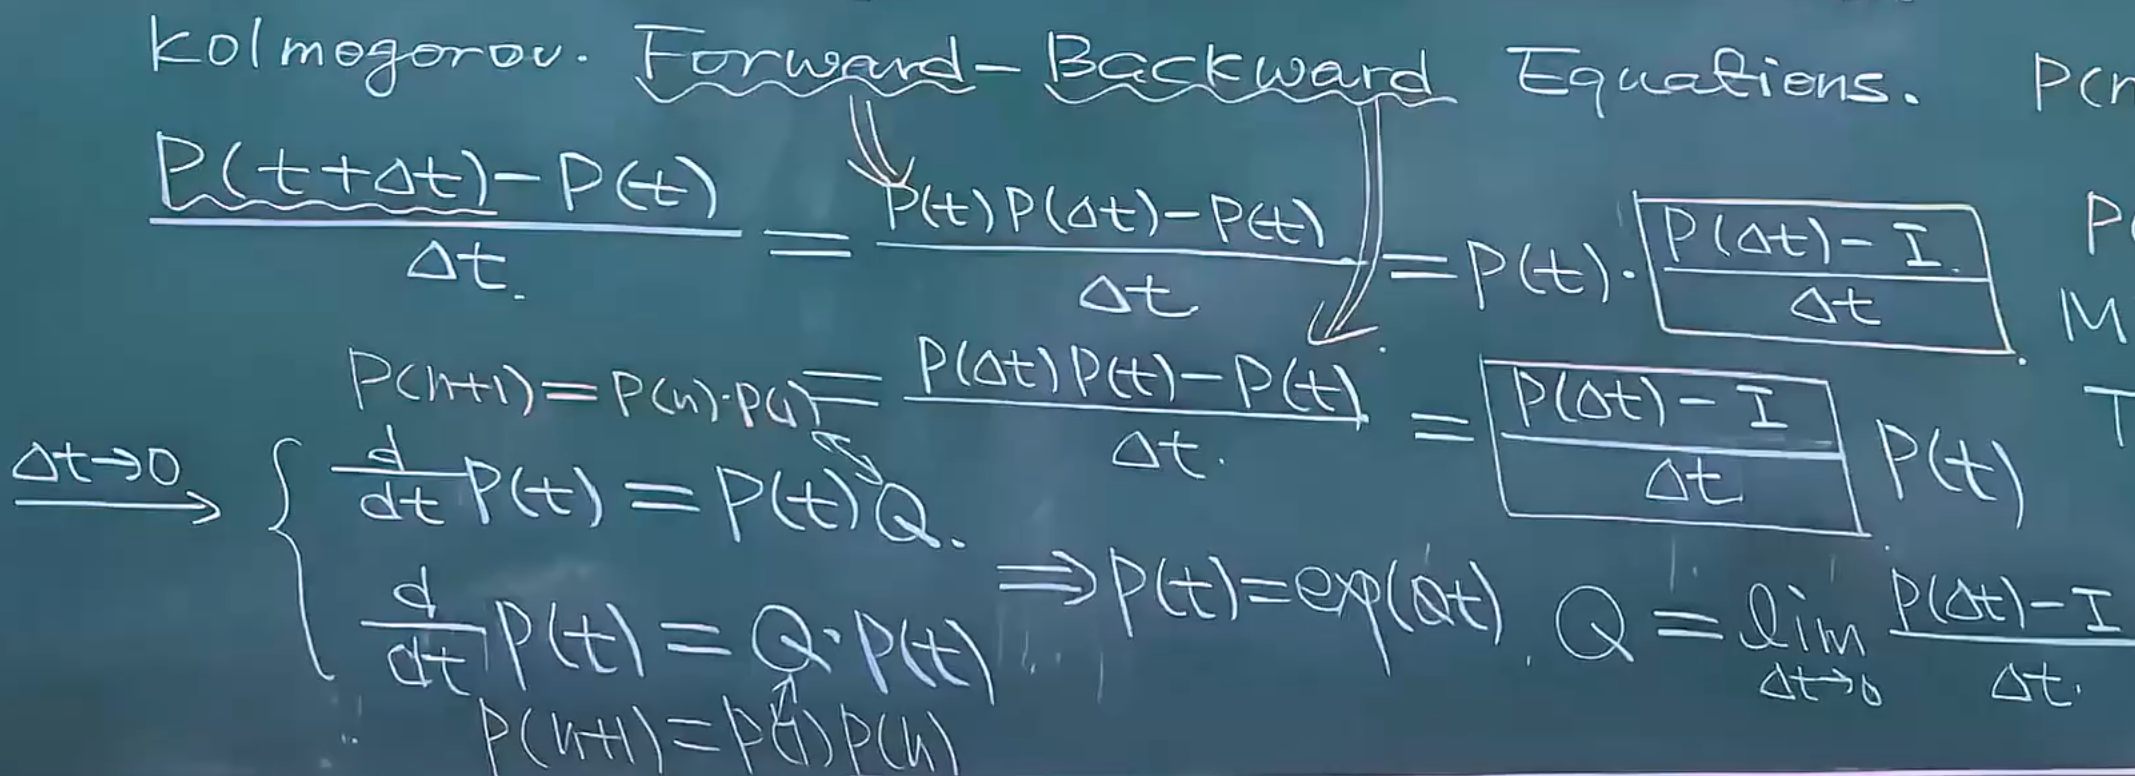 Kolmogorov. Forward-Backward Equations. P(n
\frac{P(t+Δt)-P(t)}{Δt.} = \frac{P(t)P(Δt)-P(t)}{Δt} = P(t)·\frac{P(Δt)-I.}{Δt}. P(
M
P(n+1)=P(n)·P(1) = \frac{P(Δt)P(t)-P(t)}{Δt.} = \frac{P(Δt)-I}{Δt} P(t) T
\xrightarrow{Δt→0} { \frac{d}{dt}P(t)=P(t)Q.
\frac{d}{dt}P(t)=Q·P(t) ⇒P(t)=exp(Qt). Q=\lim_{Δt→0}\frac{P(Δt)-I}{Δt.}
P(n+1)=P(1)P(n)